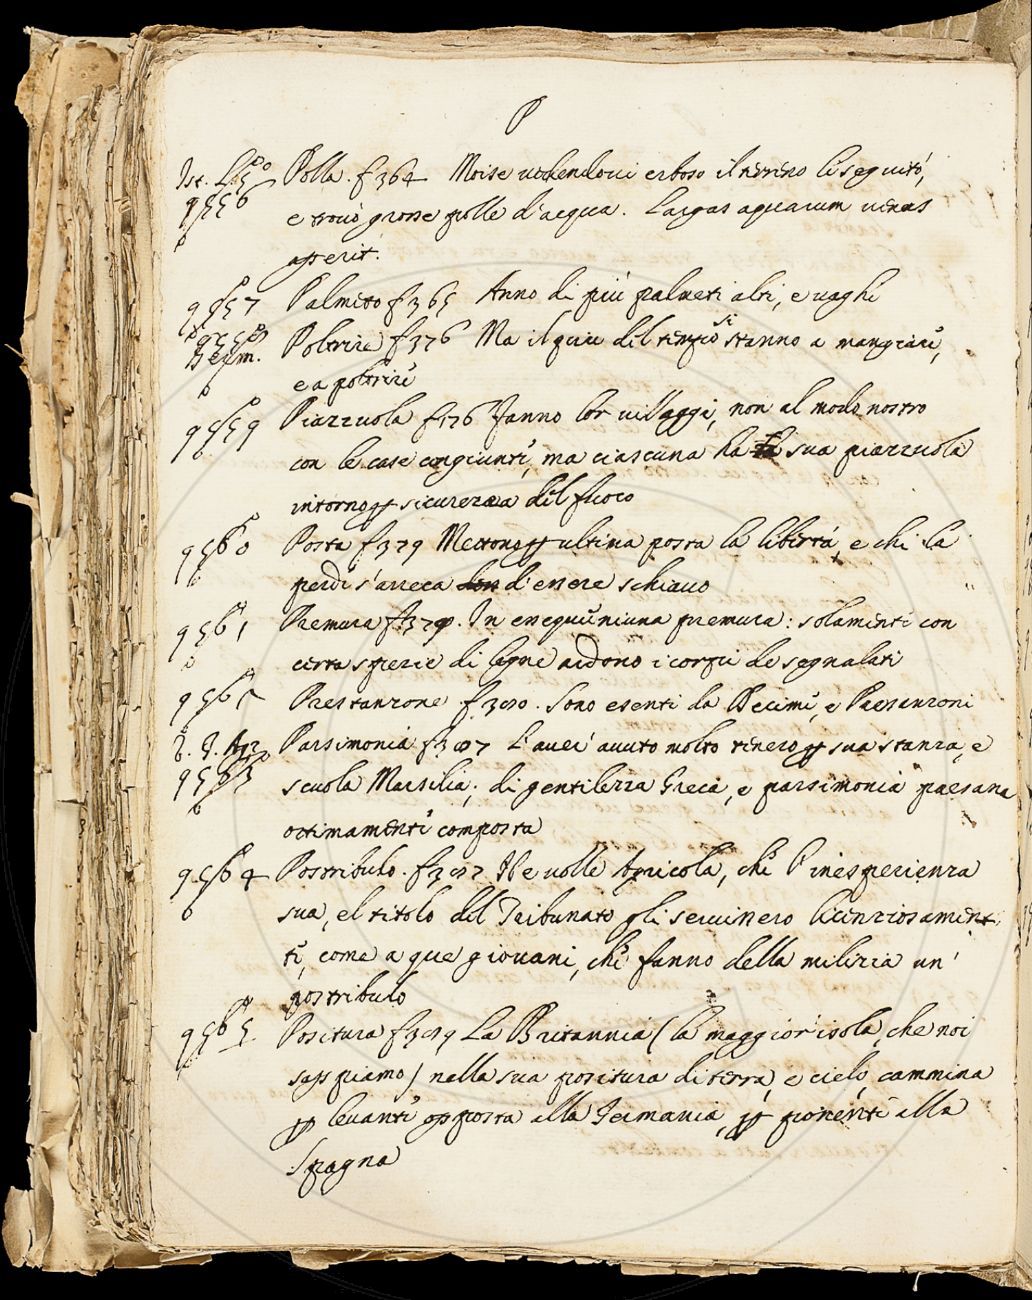 P
Ist. L. 5º Polla. f 364 Moise vedendovi erboso il terreno li seguitó,
9556 e trovò grosse polle d'acqua. Largas aquarum venas
aperit.
9557 Palmeto f 365 Anno di piú palmeti alti, e vaghi
9558 Poltrire f 376 Ma il piu del tempo si stanno a mangiare,
Germ. e a poltrire
9559 Piazzuola f 376 Fanno lor villaggi, non al modo nostro
con le case congiunte, ma ciascuna ha la sua piazzuola
intorno p sicurezza del fuoco
9560 Posta f 379 Mettono p ultima posta la libertá, e chi la
perde s'arreca d'essere schiavo
9561 Premura f 379. In esequie niuna premura: solamente con
certa spezie di legne ardono i corpi de segnalati
9562 Prestanzone f 380. Sono esenti da Decime, e Prestanzoni
V. G. Agr. Parsimonia f 387 L'aver avuto molto tenero p sua stanza, e
9563 scuola Marsilia, di gentilezza Greca, e parsimonia paesana
ottimamente composta
9564 Postribulo. f 387 Ne volle Agricola, che l'inesperienza
sua, el titolo del Tribunato gli servissero licenziosamen
te, come a que giovani, che fanno della milizia un'
postribulo
9565 Positura f 389 La Britannia (la maggior isola, che noi
sappiamo) nella sua positura di terra, e cielo, cammina
p levante opposta alla Germania, p ponente alla
Spagna